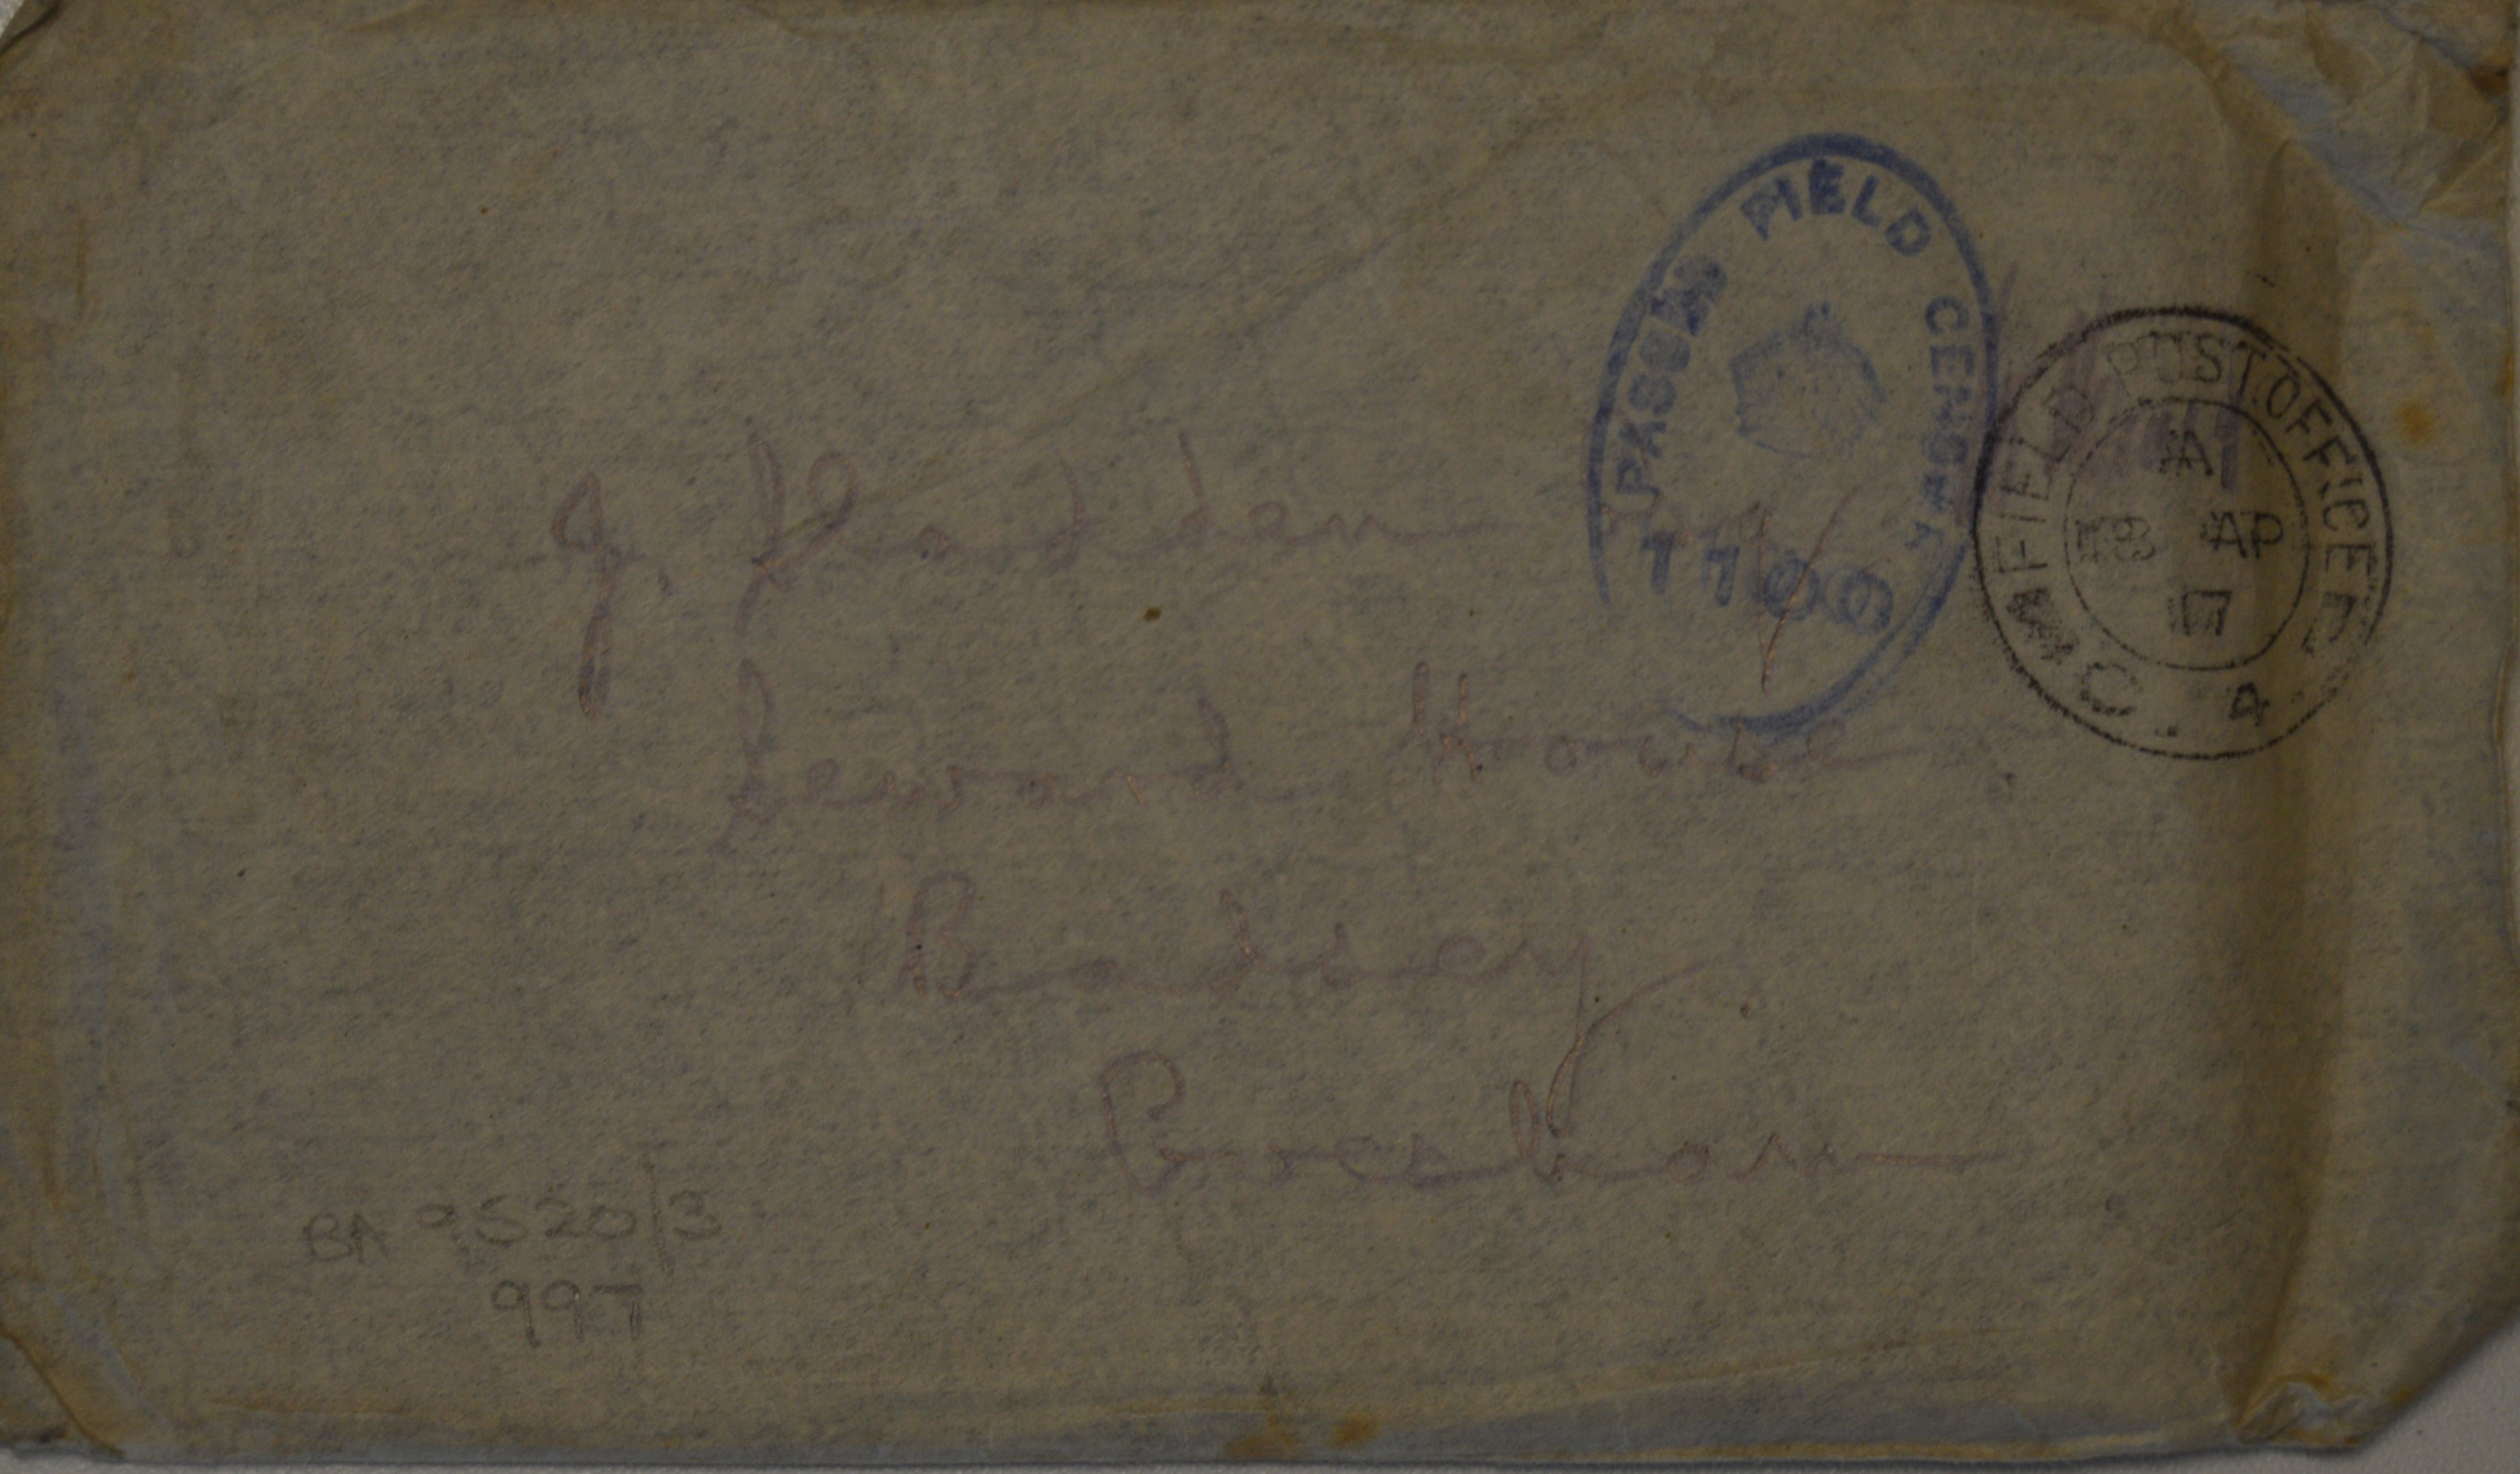 PASSED FIELD CENSOR
1100
FIELD POST OFFICE
A
18 AP
17
4
J. Sladden
Seward House
Badsey
Evesham
BA 9520/3
997